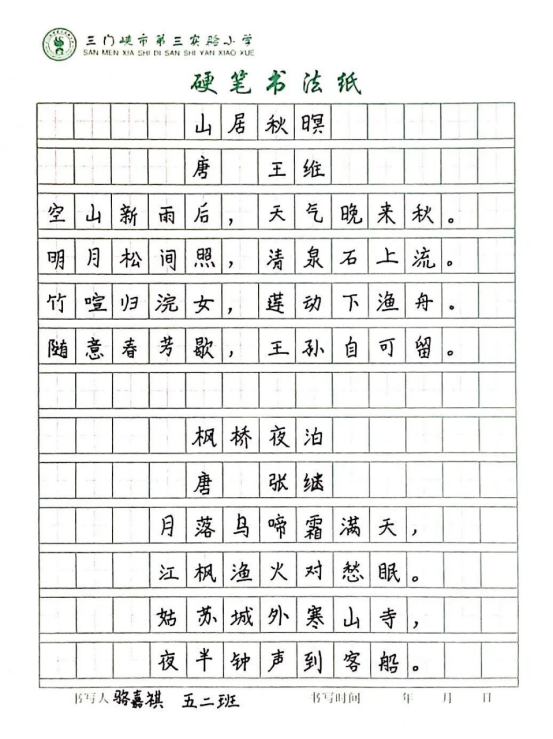 三门峡市第三实验小学
SAN MEN XIA SHI DI SAN SHI YAN XIAO XUE
硬笔书法纸
山居秋暝
唐 王维
空山新雨后，天气晚来秋。
明月松间照，清泉石上流。
竹喧归浣女，莲动下渔舟。
随意春芳歇，王孙自可留。
枫桥夜泊
唐 张继
月落乌啼霜满天，
江枫渔火对愁眠。
姑苏城外寒山寺，
夜半钟声到客船。
书写人 骆嘉祺 五二班 书写时间 年 月 日